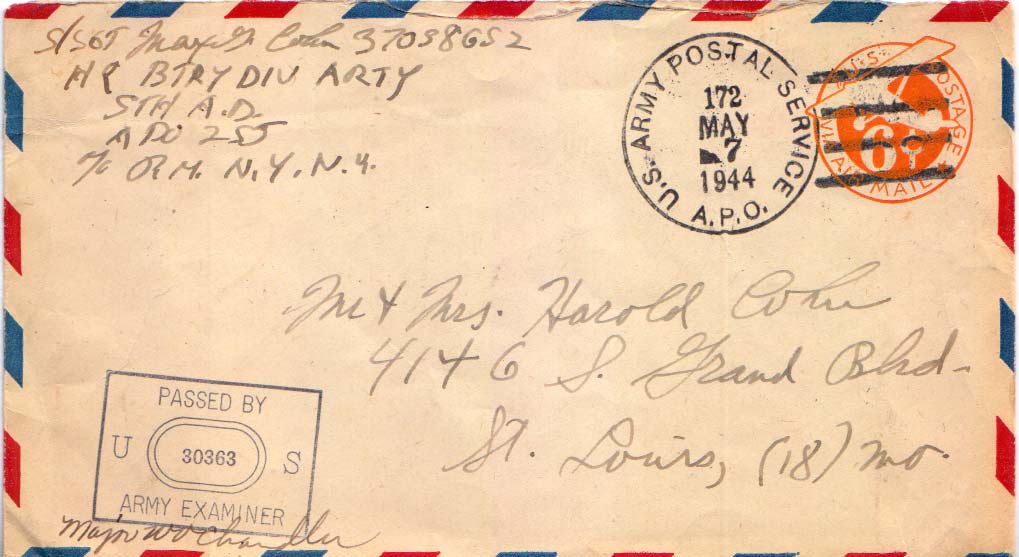 S/Sgt Max G. Cohn 37058652
HQ BTRY DIV ARTY
5TH A.D.
APO 255
c/o P.M. N.Y. N.Y.
U.S. ARMY POSTAL SERVICE
172
MAY
7
1944
A.P.O.
U.S. POSTAGE
6¢
VIA AIR MAIL
Mr & Mrs. Harold Cohn
4146 S. Grand Blvd-
St. Louis, (18) Mo.
PASSED BY
U 30363 S
ARMY EXAMINER
Major W D Chandler